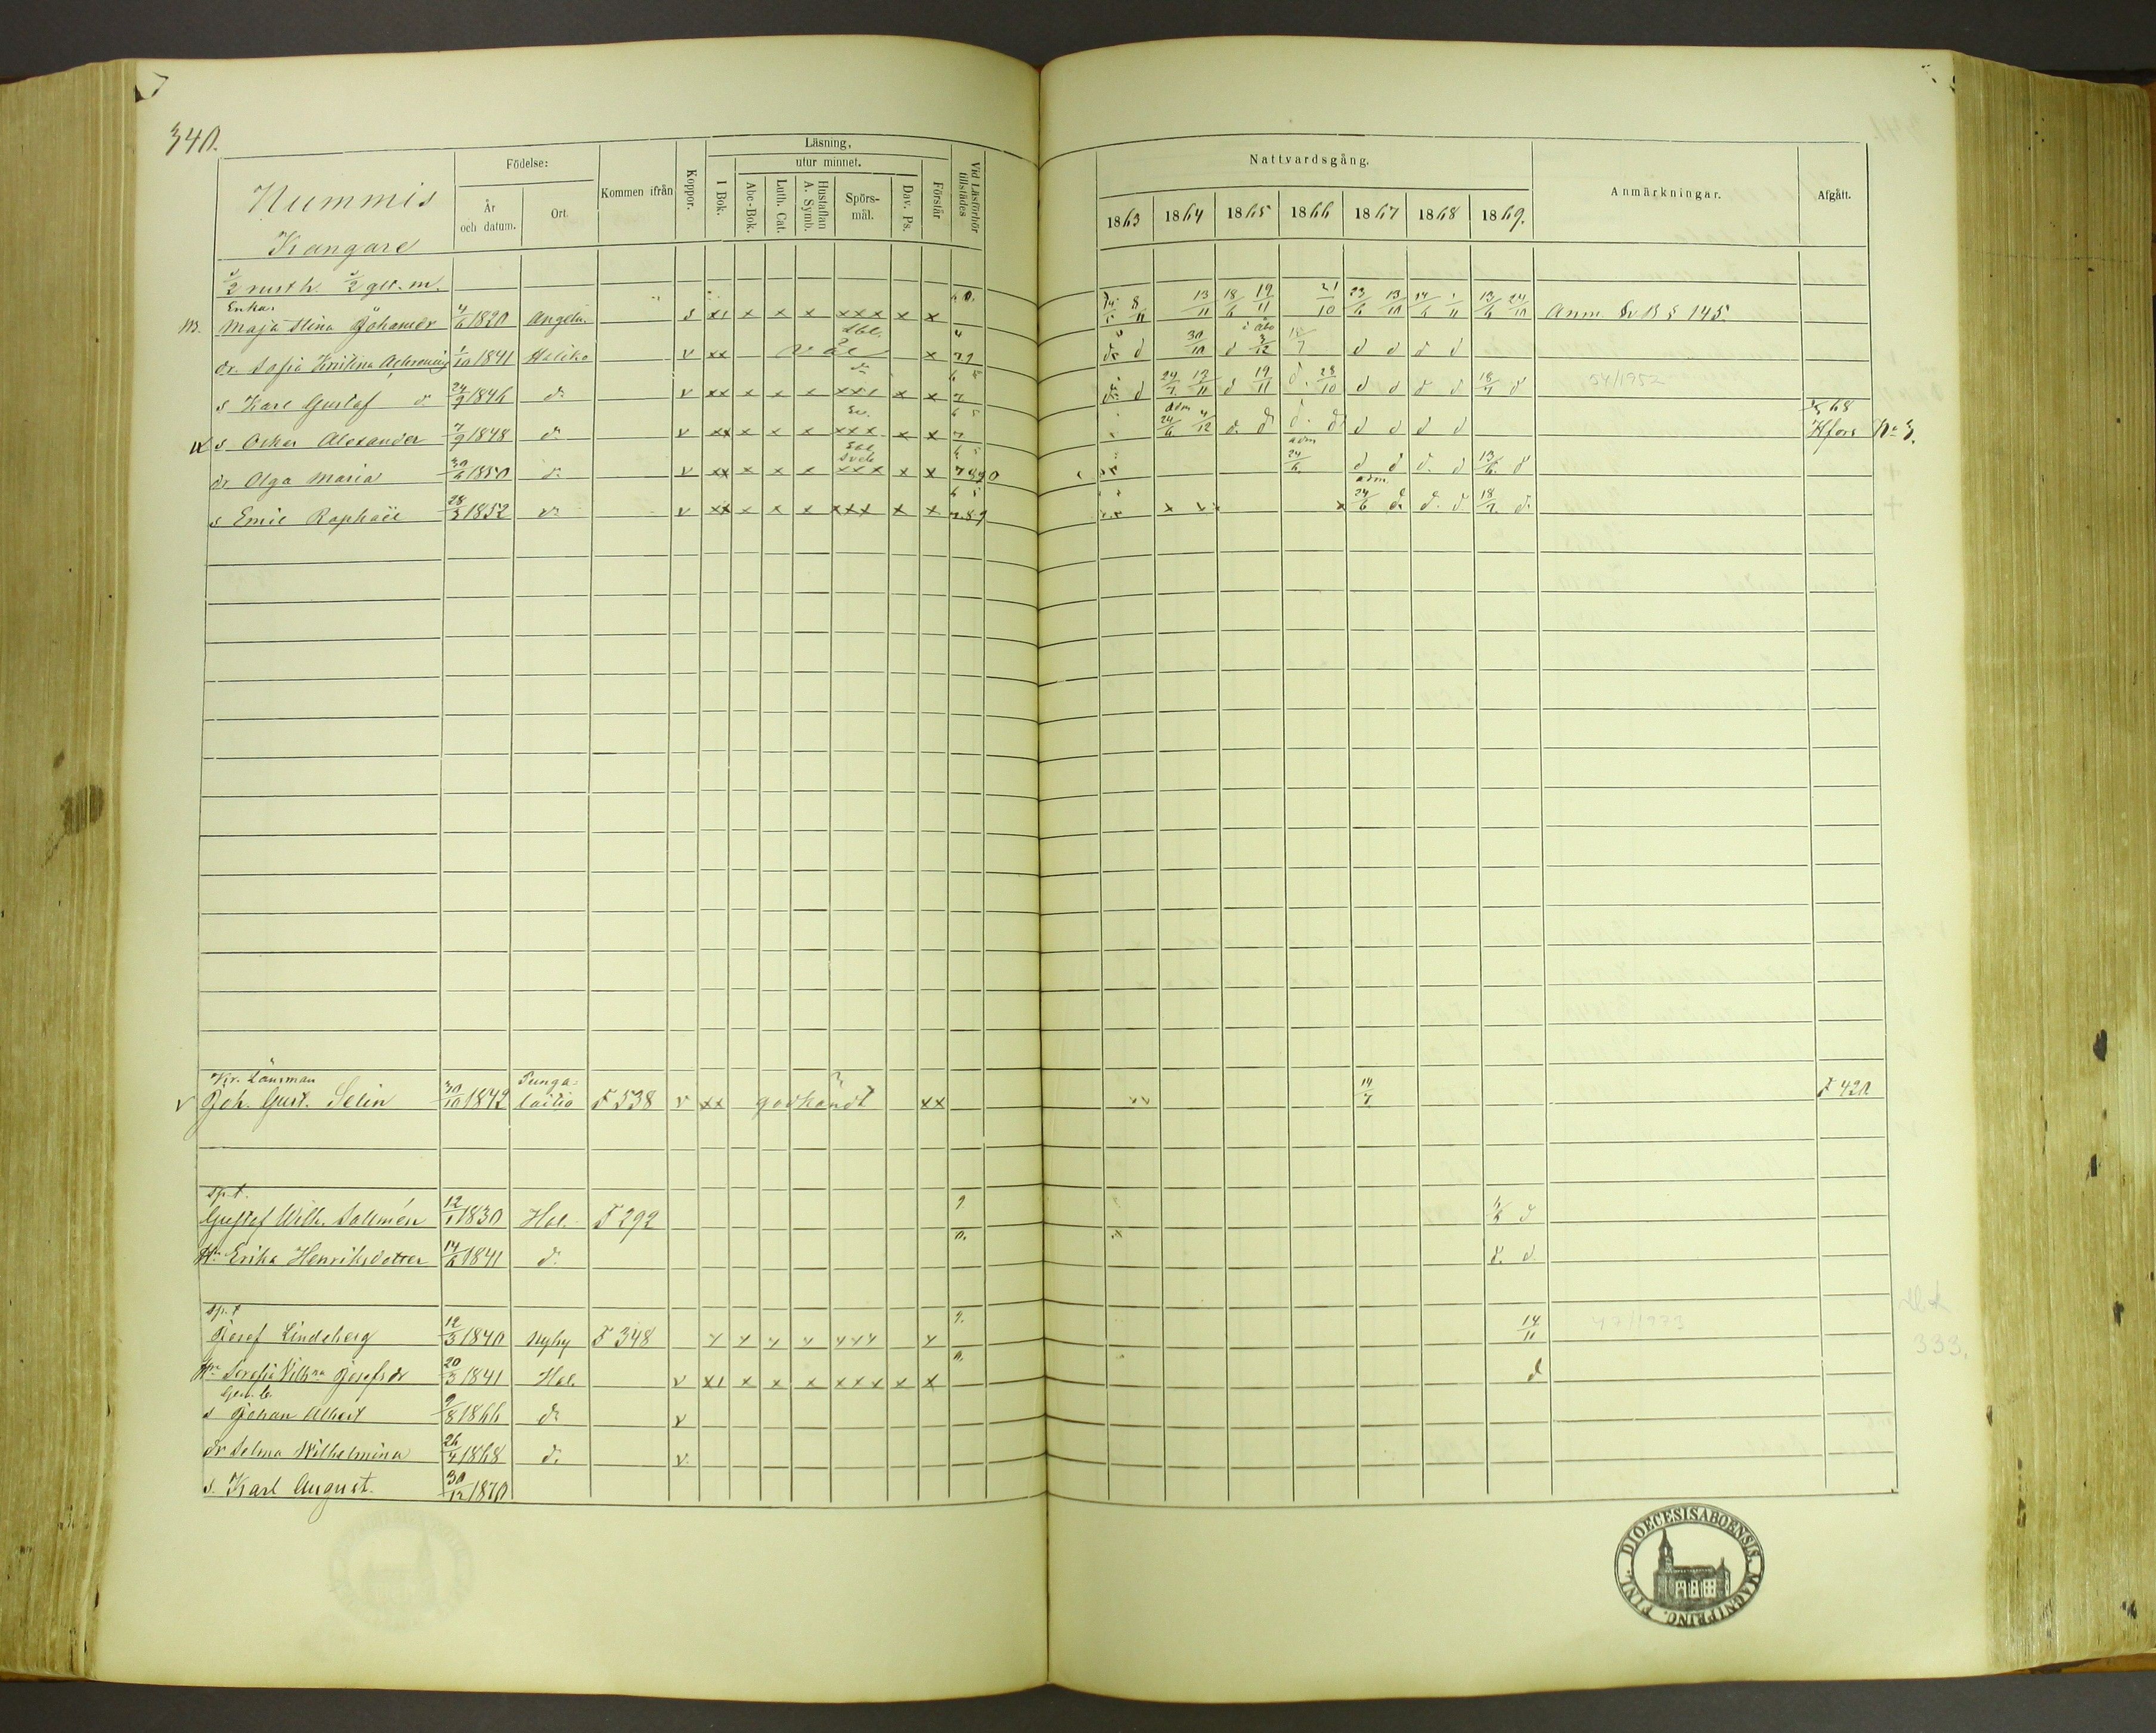 340.
Nummis
Kangare
Födelse:
År och datum.
Ort.
Kommen ifrån
Koppor.
Läsning.
I Bok.
utur minnet.
Abc-Bok.
Luth. Cat.
Hustaflan A. Symb.
Spörs-mål.
Dav. Ps.
Förstår
Vid Läsförhör tillstädes
Nattvardsgång.
1863 1864 1865 1866 1867 1868 1869.
Anmärkningar.
Afgått.
1/2 rusth. 1/2 gl. m.
Enkan
Maja Stina Johansdr 4/6 1820 Angeln. s x x x xxx x x 13/11 18/6 19/11 21/10 23/6 13/10 14/6 1/11 13/6 24/10 Anm. Sv B s 145.
dr. Sofia Kristina 1/10 1841 Haliko v xx väl x 30/10 d 3/12 d d d d
i Åbo
s Karl Gustaf 24/9 1846 do v xx x x x xxx x x 24/7 13/11 d 19/11 d. 28/10 d d d d 18/7 d 54/1952
s Oskar Alexander 7/9 1848 do v xx x x x xxx x x adm 24/6 4/12 d. d d. d d d d d 68 Hfors No 3.
dr Olga Maria 30/6 1850 do v xx x x x xxx x x adm 24/6 d d d. d 13/6 d
s Emil Raphael 28/3 1852 do v xx x x x xxx x x 7.89 adm. 24/6 d. d. d 18/7 d.
Kr. Länsman
Joh. Gust. Selin 30/10 1842 Punga-laitio F 538 v xx godkändt xx 14/7 F 420
sp. t.
Gustaf Wilh. Sallmén 12/1 1830 Hal. F 292 9 d
Hu Erika Henriksdotter 14/6 1841 do d. d
sp. t
Josef Lindsberg 12/3 1840 Nyby F 348 9. 14/11 47/1973
333.
Hu Serafia Wilhna Josefsdr 20/3 1841 Hal. v xx x x x xxx x x d
s Johan Albert 9/8 1866 do v
dr Selma Wilhelmina 26/4 1868 do v.
s. Karl August. 30/12 1870
DIOECESIS ABOENSIS. MAGNI PRINC. FINL.